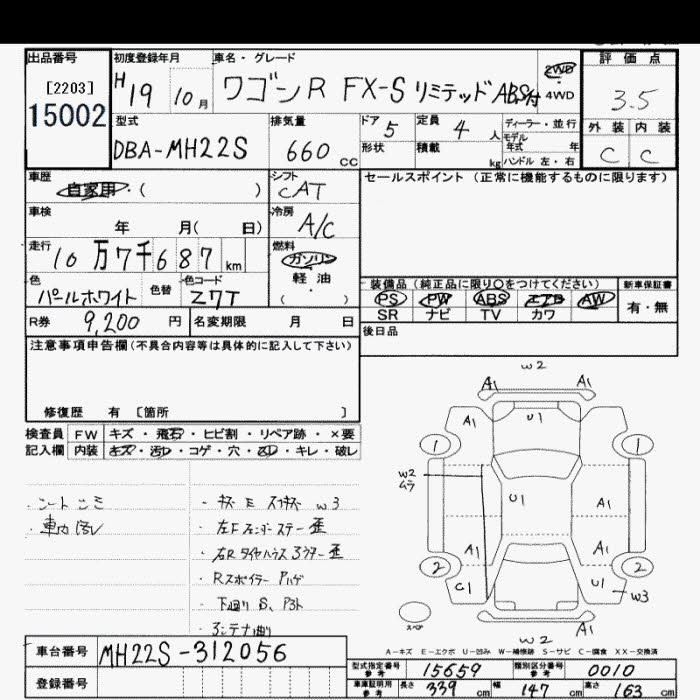 出品番号 初度登録年月 車名・グレード 評価点
[2203]
15002
H19 10月 ワゴンR FX-S リミテッド ABS付 2WD
4WD
3.5
型式 排気量 ドア 定員 ディーラー・並行 外装 内装
DBA-MH22S 660 CC 5 4人 モデル
年式 年
形状 積載 kg ハンドル 左・右 C C
車歴 シフト セールスポイント (正常に機能するものに限ります)
自家用・( ) CAT
車検 冷房
年 月( 日) A/C
走行 燃料
10万7千687 km ガソリン
軽油
( )
色 色替 色コード
パールホワイト Z7T
装備品(純正品に限り〇をつけてください) 新車保証書
PS PW ABS エアB AW 有・無
SR ナビ TV カワ
R券 9,200円 名変期限 月 日 後日品
注意事項申告欄(不具合内容等は具体的に記入して下さい)
修復歴 有 [箇所 ]
検査員 FW キズ・飛石・ヒビ割・リペア跡・×要
記入欄 内装 キズ・汚れ・コゲ・穴・スレ・キレ・破レ
・シートシミ
・キズ E スリキズ W3
・左Fフェンダーステー歪
・右Rタイヤハウス
・Rスポイラー Pハゲ
・下廻り S、
・アンテナ曲り
W2
A1 A1
A1 U1
1 1
W2
ムラ
U1 A1
A1 A1
2 2
C1 U1
W3
A1
W2
A-キズ E-エクボ U-凹み W-補修跡 S-サビ C-腐食 XX-交換済
車台番号 MH22S-312056
登録番号
型式指定番号
参考 15659 類別区分番号
参考 0010
車庫証明用
参考 長さ 339 cm 幅 147 cm 高さ 163 cm